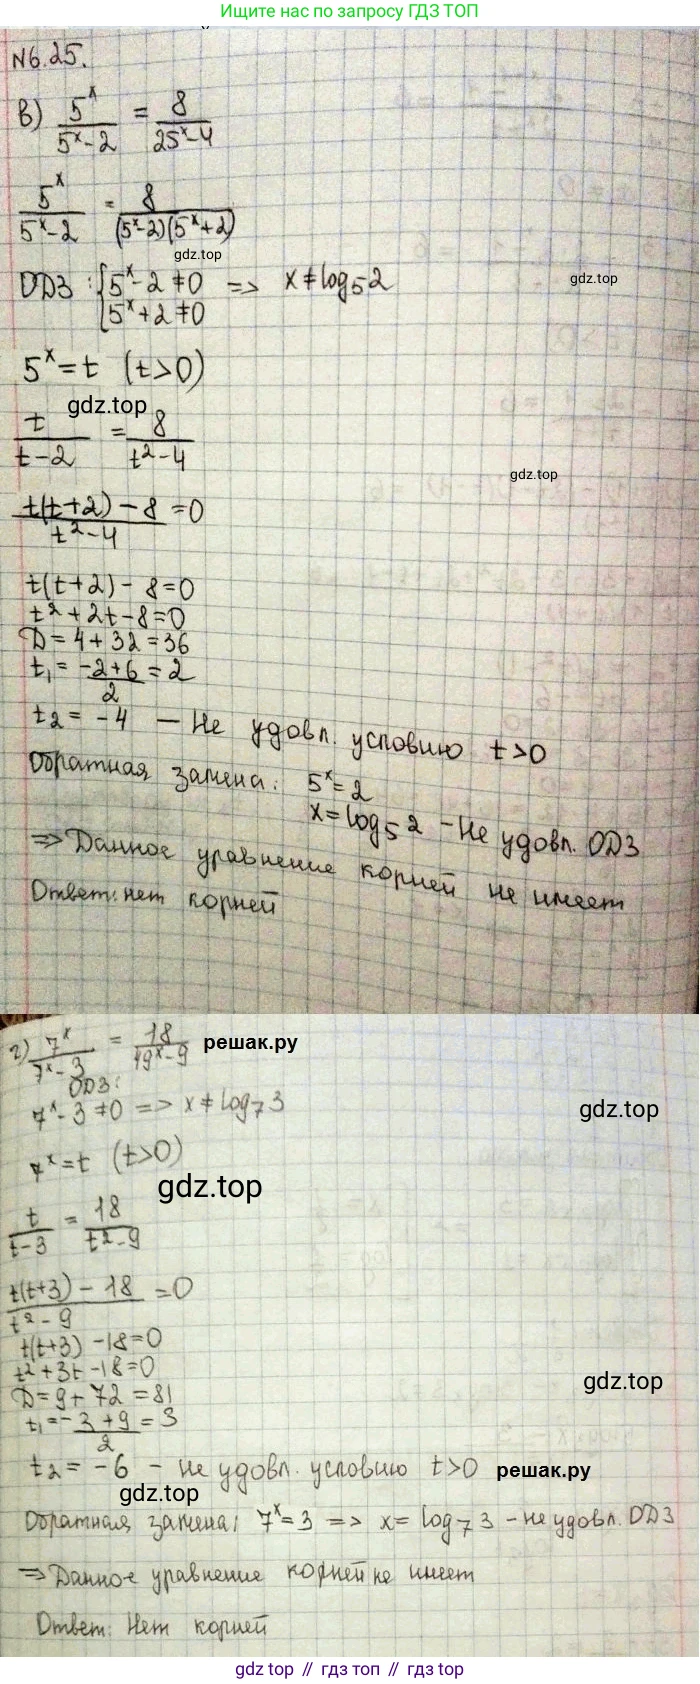 Ищите нас по запросу ГДЗ ТОП
N6.25.
в) 5^x/(5^x-2) = 8/(25^x-4)
5^x/(5^x-2) = 8/((5^x-2)(5^x+2))
gdz.top
ОДЗ: {5^x-2≠0 => x≠log₅2
gdz.top
5^x+2≠0
5^x=t (t>0)
gdz.top
t/(t-2) = 8/(t²-4)
gdz.top
(t(t+2)-8)/(t²-4) =0
t(t+2)-8=0
t²+2t-8=0
D=4+32=36
t₁=(-2+6)/2=2
t₂=-4 — Не удовл. условию t>0
Обратная замена: 5^x=2
x=log₅2 -Не удовл. ОДЗ
=> Данное уравнение корней не имеет
Ответ: нет корней
г) 7^x/(7^x-3) = 18/(49^x-9) решак.ру
ОДЗ:
7^x-3≠0 => x≠log₇3
gdz.top
7^x=t (t>0)
gdz.top
t/(t-3) = 18/(t²-9)
(t(t+3)-18)/(t²-9) =0
t(t+3)-18=0
t²+3t-18=0
gdz.top
D=9+72=81
t₁=(-3+9)/2=3
t₂=-6 - не удовл. условию t>0 решак.ру
gdz.top
Обратная замена: 7^x=3 => x=log₇3 -не удовл. ОДЗ
=> Данное уравнение корней не имеет
Ответ: Нет корней
gdz top // гдз топ // gdz.top